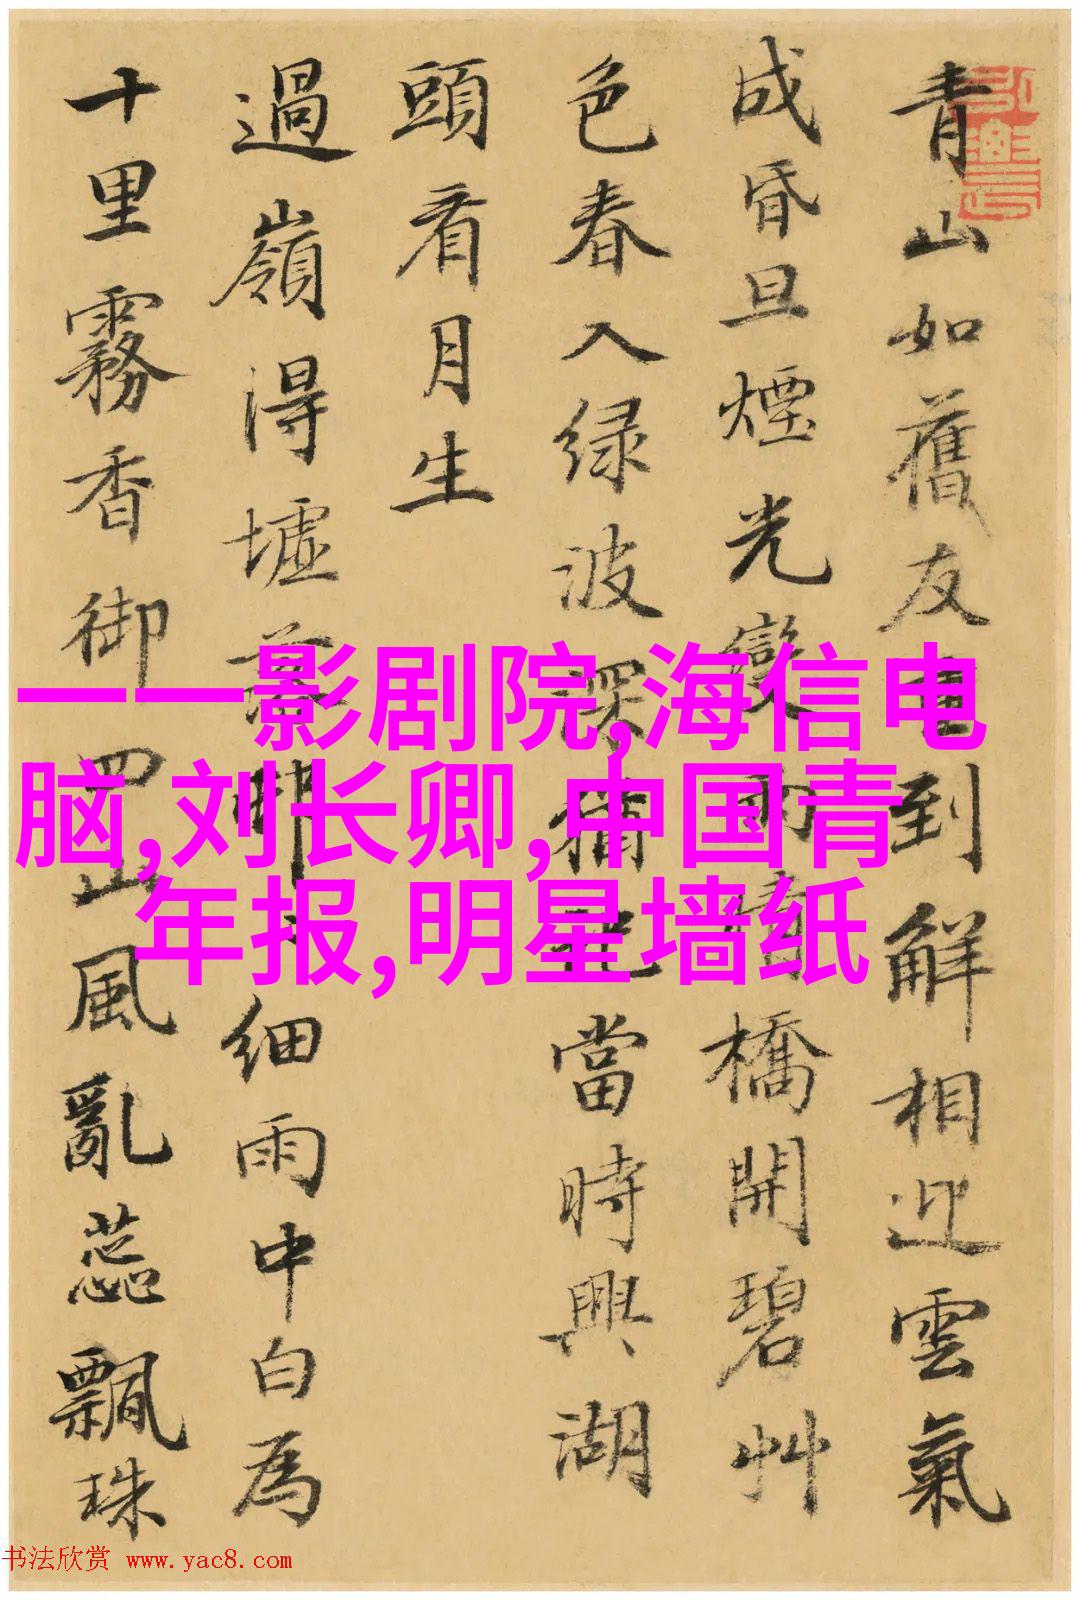 青山如舊友重到解相迎雲氣
成昏旦煙光變雨晴橋開碧艸
色春入绿波深猶記當時興湖
頭看月生
過嶺得墟落柳 細雨中白為
十里霧香御四山風亂蕊飄珠
一一影剧院,海信电
脑,刘长卿,中国青
年报,明星墙纸
书法欣赏 www.yac8.com